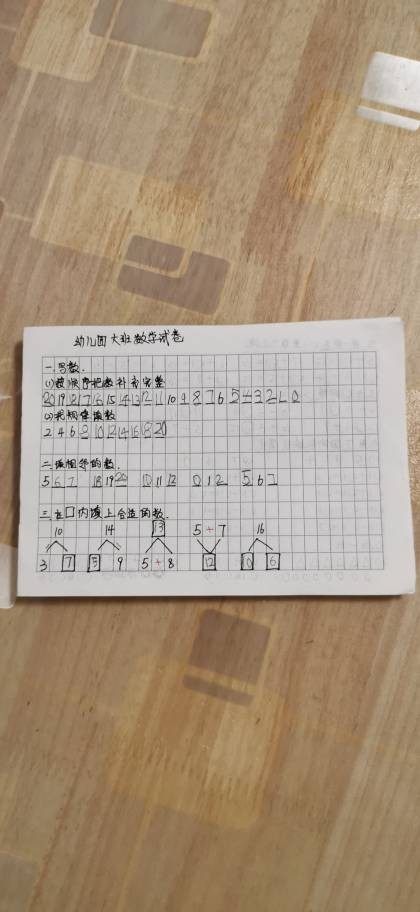 幼儿园大班数学试卷
一.写数.
(1)按顺序把数补充完整
20 19 18 17 16 15 14 13 12 11 10 9 8 7 6 5 4 3 2 1 0
(2)找规律填数
2 4 6 8 10 12 14 16 18 20
二.填相邻的数.
5 6 7 18 19 20 10 11 12 0 1 2 5 6 7
三.在□内填上合适的数.
10 14 13 5 + 7 16
3 7 5 9 5 + 8 12 10 6